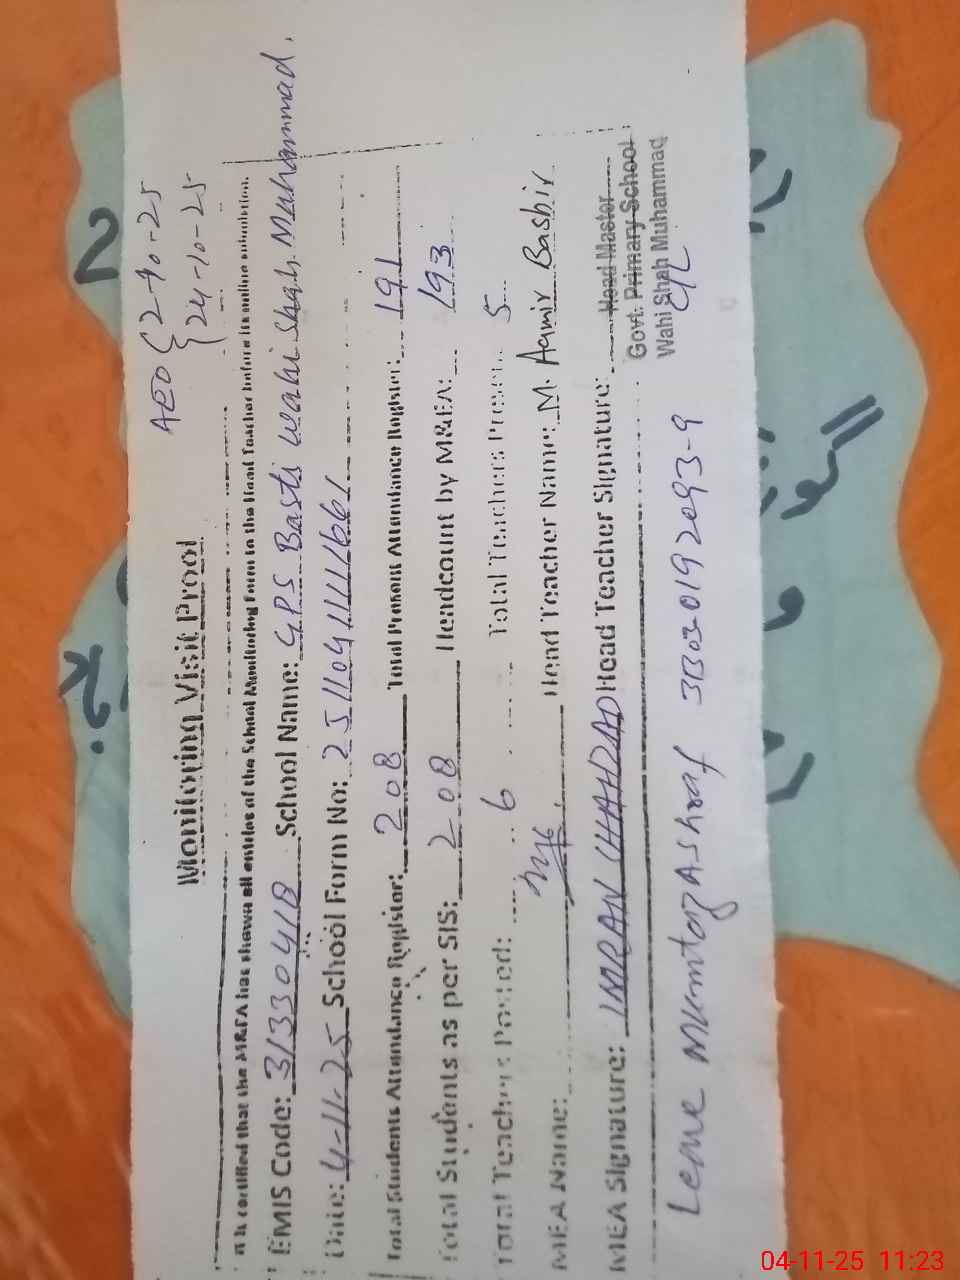 AEO { 2-10-25
24-10-25
Monitoring Visit Proof
It is certified that the M&EA has shown all entries of the School Monitoring Form to the Head Teacher before its online submission.
EMIS Code: 31330418 School Name: GPS Basti wahi Shah Muhammad.
Date: 4-11-25 School Form No:
Total Students Attendance Register: 208 Total Present Attendance Register: 191
Total Students as per SIS: 208 Headcount by M&EA: 193
Total Teachers Posted: 6 Total Teachers Present: 5
MEA Name: Head Teacher Name: M. Aamir Bashir
MEA Signature: IMRAN SHAHZAD Head Teacher Signature:
Head Master
Govt: Primary School
Wahi Shah Muhammad
Leave Mumtaz Ashraf
04-11-25 11:23